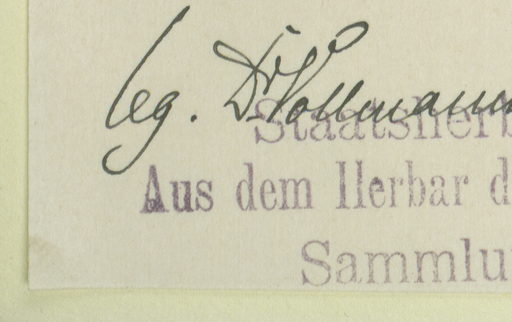 leg. Dr. Vollmann
Staatsherb
Aus dem Herbar d
Sammlu